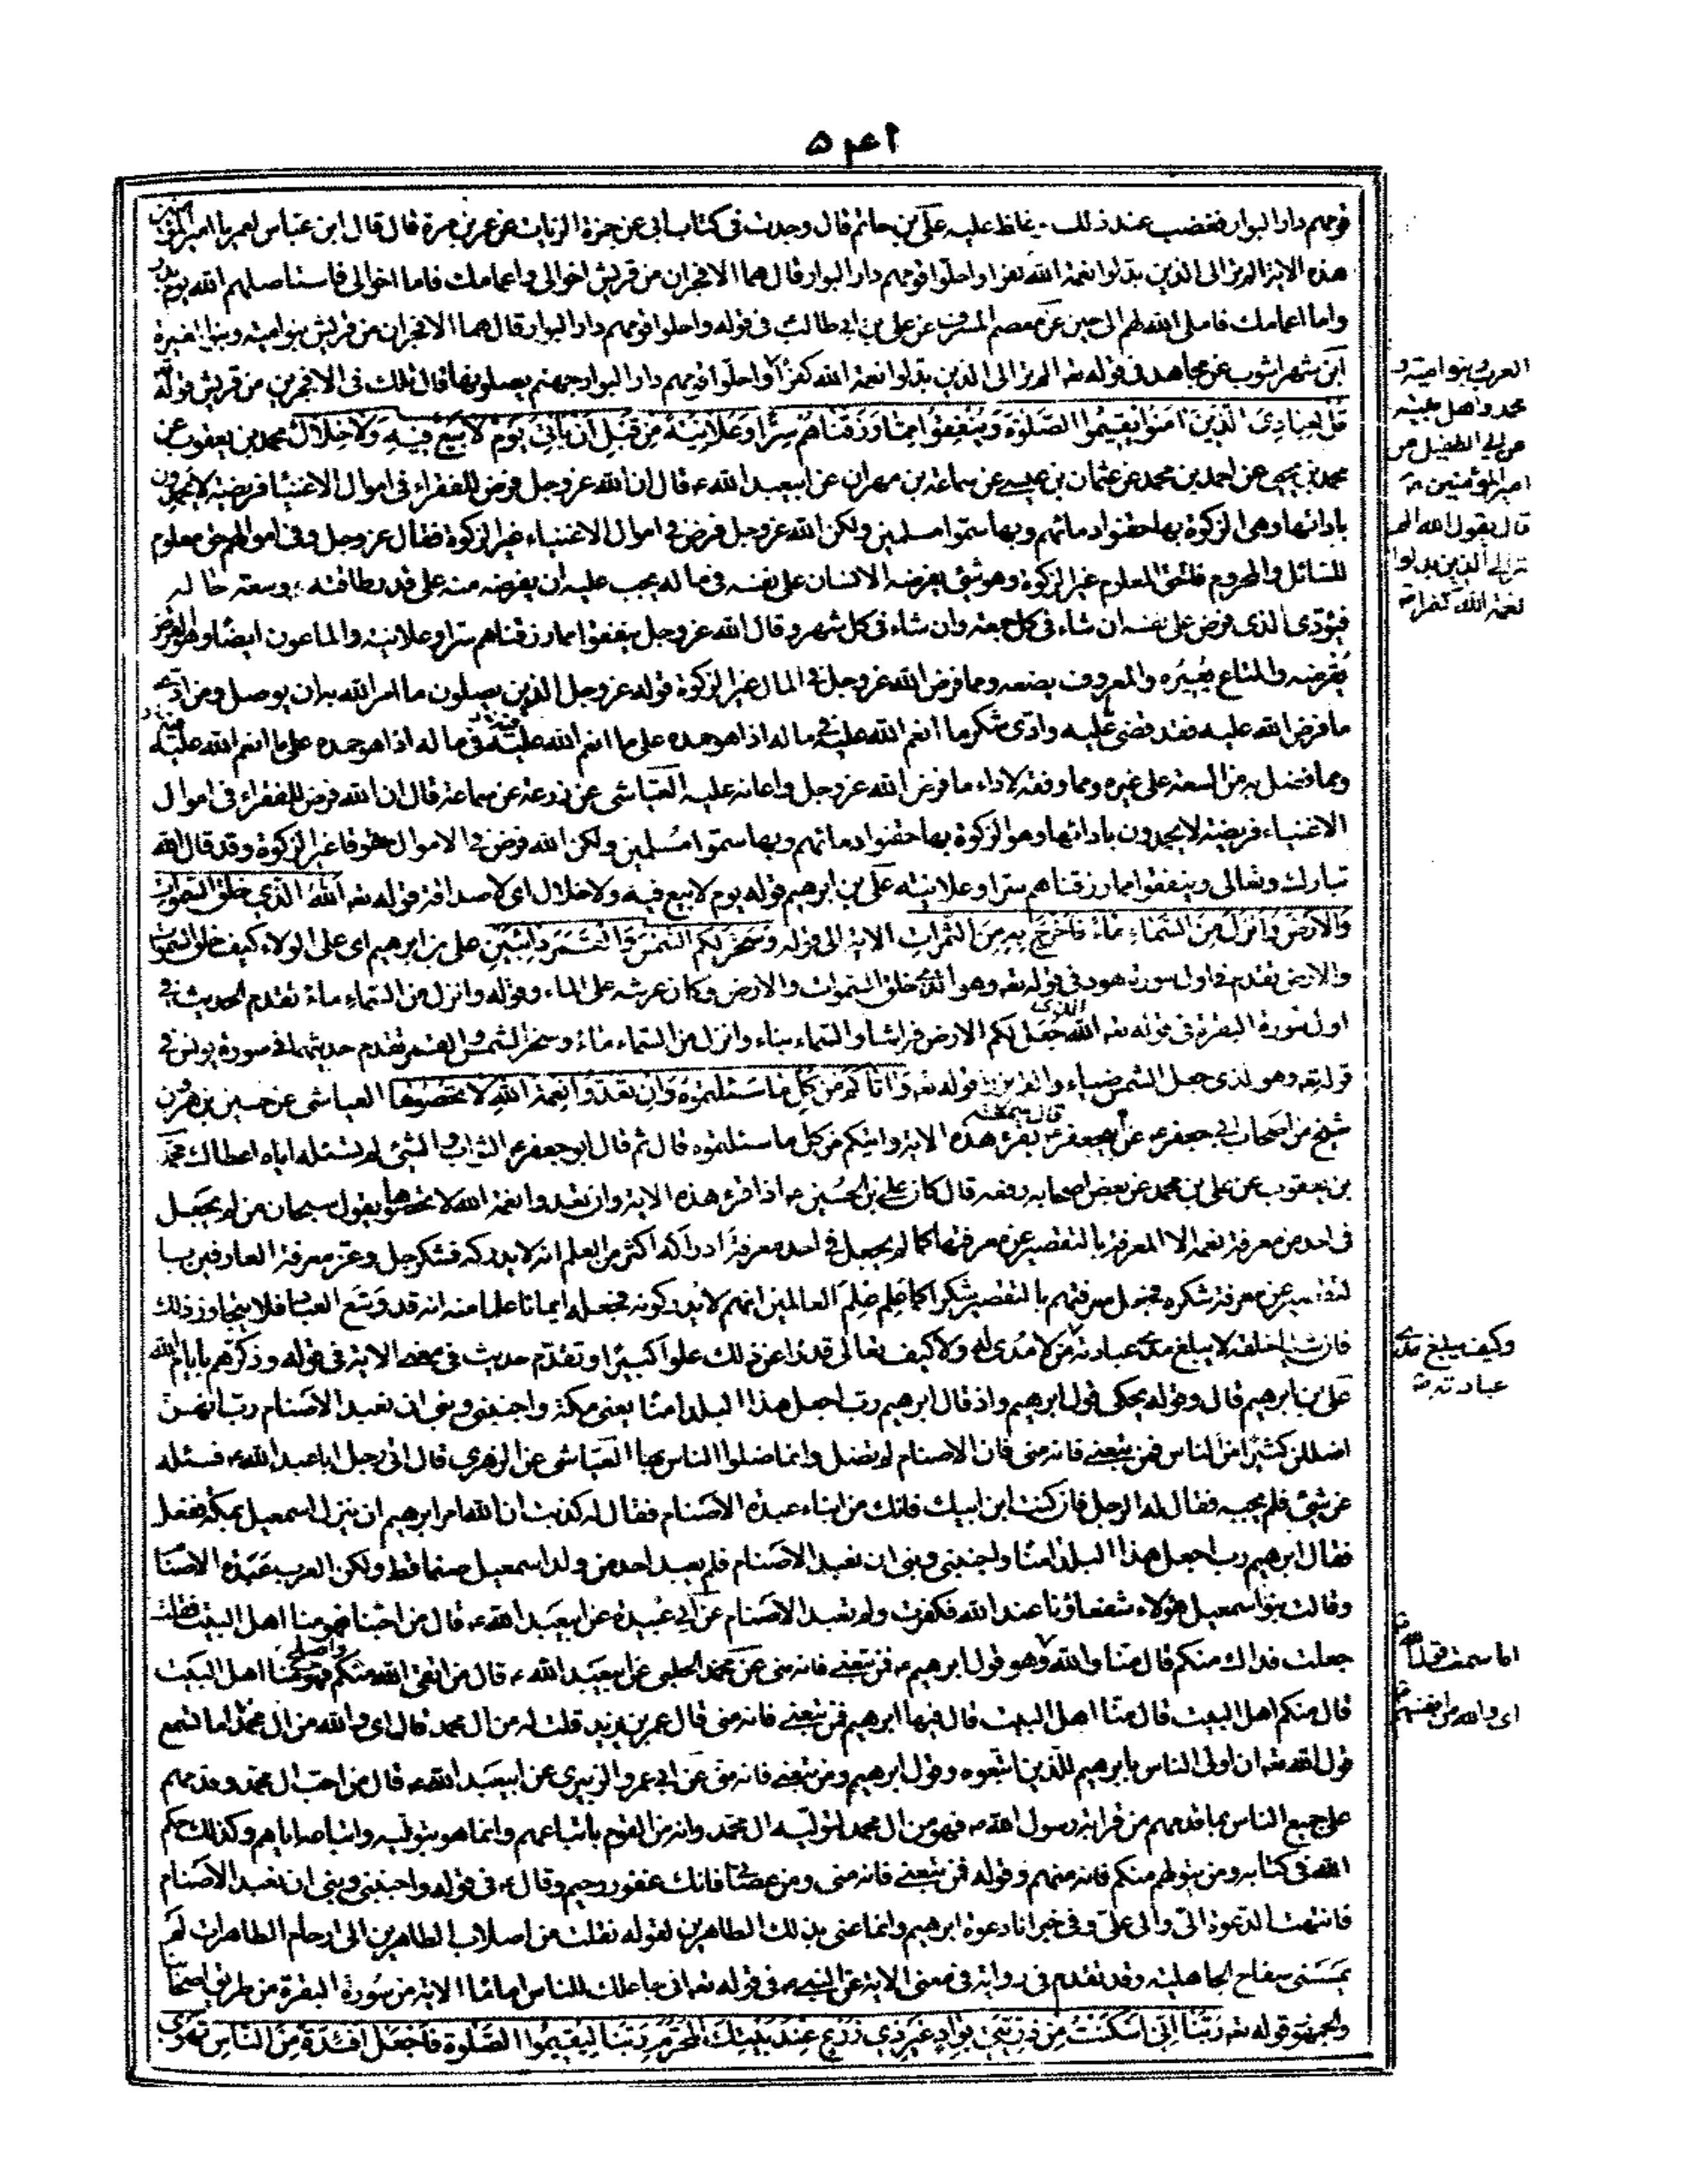 قومهم دار البوار فغضب عند ذلك عليه علي بن حاتم قال وجدت في كتاب ابي عن حمزة الزيات عن عمر بن مرة قال قال ابن عباس لعمر يا امير المؤمنين
هذه الاية الم تر الى الذين بدلوا نعمة الله كفرا واحلوا قومهم دار البوار قال هما الافجران من قريش اخوالى واعمامك فاما اخوالى فاستاصلهم الله يوم بدر
واما اعمامك فاملى الله لهم الى حين عن معصم المسرف عن علي بن ابي طالب في قوله واحلوا قومهم دار البوار قال هما الافجران من قريش بنو امية وبنو المغيرة
ابن شهراشوب عن مجاهد في قوله تعه الم تر الى الذين بدلوا نعمة الله كفرا واحلوا قومهم دار البوار جهنم يصلونها قال نزلت في الافجرين من قريش قوله
قل لعبادى الذين امنوا يقيموا الصلوة وينفقوا مما رزقناهم سرا وعلانية من قبل ان ياتى يوم لا بيع فيه ولا خلال محمد بن يعقوب عن
محمد بن يحيى عن احمد بن محمد عن عثمان بن عيسى عن سماعة بن مهران عن ابيعبد الله ء قال ان الله عز وجل فرض للفقراء في اموال الاغنياء فريضة لا يحمدون
بادائها وهى الزكوة بها حقنوا دمائهم وبها سموا مسلمين ولكن الله عز وجل فرض في اموال الاغنياء غير الزكوة فقال عز وجل وفى اموالهم حق معلوم
للسائل والمحروم فالحق المعلوم غير الزكوة وهو شئ يفرضه الانسان على نفسه في ماله يجب عليه ان يفرضه منه على قدر طاقته وسعة حاله
فيؤدى الذى فرض على نفسه ان شاء في كل جمعة وان شاء في كل شهر وقال الله عز وجل ينفقوا مما رزقناهم سرا وعلانية والماعون ايضا وهو القرض
يقرضه والمتاع يعيره والمعروف يصنعه ومما فرض الله عز وجل في المال غير الزكوة قوله عز وجل الذين يصلون ما امر الله به ان يوصل ومن ادى
ما فرض الله عليه فقد قضى ما عليه وادى شكر ما انعم الله عليه في ماله اذا هو حمده على ما انعم الله عليه
ومما فضل به من السعة على غيره ومما وفقه لاداء ما فرض الله عز وجل واعانه عليه العياشى عن زرعة عن سماعة قال ان الله فرض للفقراء في اموال
الاغنياء فريضة لا يحمدون بادائها وهو الزكوة بها حقنوا دمائهم وبها سموا مسلمين ولكن الله فرض في الاموال حقوقا غير الزكوة وقد قال الله
تبارك وتعالى وينفقوا مما رزقناهم سرا وعلانية علي بن ابرهيم قوله يوم لا بيع فيه ولا خلال اى لا صداقة قوله تعه الله الذى خلق السموات
والارض وانزل من السماء ماء فاخرج به من الثمرات الاية الى قوله وسخر لكم الشمس والقمر دائبين علي بن ابرهيم اى على الولاء كيف خلق السموات
والارض تقدم في اول سورة هود في قوله تعه وهو الذى خلق السموات والارض وكان عرشه على الماء وقوله وانزل من السماء ماء تقدم الحديث في
اول سورة البقرة في قوله تعه الله الذى جعل لكم الارض فراشا والسماء بناء وانزل من السماء ماء وسخر الشمس والقمر تقدم حديثهما في سورة يونس في
قوله تعه وهو الذى جعل الشمس ضياء والقمر نورا قوله تعه واتاكم من كل ما سئلتموه وان تعدوا نعمة الله لا تحصوها العياشى عن حسين بن هرون
شيخ من اصحاب ابي جعفر ء عن ابيجعفر ء قال سمعته يقرء هذه الاية واتيكم من كل ما سئلتموه قال ثم قال ابو جعفر ء الثواب والشئ لم تسئله اياه اعطاك محمد
بن يعقوب عن علي بن محمد عن بعض اصحابه رفعه قال كان علي بن الحسين ء اذا قرء هذه الاية وان تعدوا نعمة الله لا تحصوها يقول سبحان من لم يجعل
في احد من معرفة نعمه الا المعرفة بالتقصير عن معرفتها كما لم يجعل في احد معرفة ادراكه اكثر من العلم انه لا يدركه فشكر جل وعز معرفة العارفين
بالتقصير عن معرفة شكره فجعل معرفتهم بالتقصير شكرا كما علم علم العالمين انهم لا يدركونه فجعله ايمانا علما منه انه قد وسع العباد فلا يتجاوز ذلك
فان شيئا من خلقه لا يبلغ مدى عبادته من لا مدى له ولا كيف تعالى الله عن ذلك علوا كبيرا وتقدم حديث في معنى الاية في قوله وذكرهم بايام الله
علي بن ابرهيم قال وقوله يحكى قول ابرهيم واذ قال ابرهيم رب اجعل هذا البلد امنا يعنى مكة واجنبنى وبنى ان نعبد الاصنام رب انهن
اضللن كثيرا من الناس فمن تبعنى فانه منى فان الاصنام لم تضل وانما ضلوا الناس بها العياشى عن الزهرى قال اتى رجل ابا عبد الله ء فسئله
عن شئ فلم يجبه فقال له الرجل فان كنت ابن ابيك فانك من ابناء عبدة الاصنام فقال له كذبت ان الله امر ابرهيم ان ينزل اسمعيل بمكة ففعل
فقال ابرهيم رب اجعل هذا البلد امنا واجنبنى وبنى ان نعبد الاصنام فلم يعبد احد من ولد اسمعيل صنما قط ولكن العرب عبدة الاصنام
وقالت بنو اسمعيل هؤلاء شفعاؤنا عند الله فكفرت ولم تعبد الاصنام عن ابي عبيدة عن ابيعبد الله ء قال من احبنا فهو منا اهل البيت فقلت
جعلت فداك منكم قال منا والله وهو قول ابرهيم ء فمن تبعنى فانه منى عن محمد الحلبى عن ابيعبد الله ء قال من اتقى الله منكم واصلح فهو منا اهل البيت
قال منكم اهل البيت قال منا اهل البيت قال فيها ابرهيم فمن تبعنى فانه منى قال عمر بن يزيد قلت له من ال محمد قال اى والله من ال محمد اما تسمع
قول الله تعه ان اولى الناس بابرهيم للذين اتبعوه وقول ابرهيم ومن تبعنى فانه منى عن ابي عمرو الزبيرى عن ابيعبد الله ء قال من احب ال محمد وقدمهم
على جميع الناس بما قدمهم من قرابة رسول الله ص فهو من ال محمد لتوليه ال محمد وانه من القوم باتباعهم وانما هو بتوليه واتباعه اياهم وكذلك حكم
الله في كتابه ومن يتولهم منكم فانه منهم وقوله فمن تبعنى فانه منى ومن عصانى فانك غفور رحيم وقال ء في قوله واجنبنى وبنى ان نعبد الاصنام
فانتهت الدعوة الى والى علي وفى خبر انا دعوة ابرهيم وانما عنى بذلك الطاهرين لقوله نقلت من اصلاب الطاهرين الى ارحام الطاهرات لم
يمسنى سفاح الجاهلية وقد تقدم في رواية في معنى الاية عن النبى ص في قوله تعه انى جاعلك للناس اماما الاية من سورة البقرة من طريق اصحابنا
والجمهور قوله تعه ربنا انى اسكنت من ذريتى بواد غير ذى زرع عند بيتك المحرم ربنا ليقيموا الصلوة فاجعل افئدة من الناس تهوى
العرب بنو امية و
محمد واهل بيته
عن ابي الطفيل عن
امير المؤمنين
قال يقول الله الم
تر الى الذين بدلوا
نعمة الله كفرا
وكيف يبلغ مدى
عبادته
اما سمعت قول الله
اى والله من انفسهم